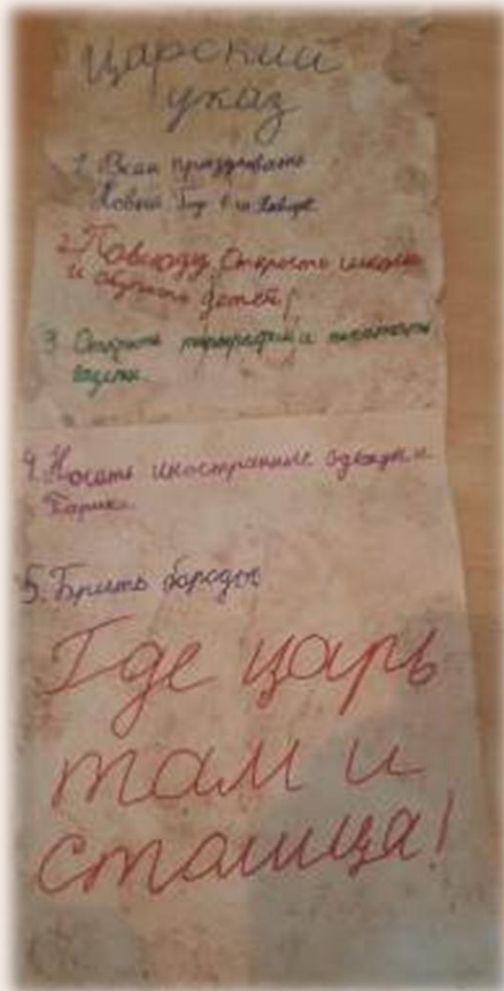 Царский
указ
1. Всем праздновать
Новый Год 1-го Января
2. Повсюду строить школы
и обучать детей!
3. Открыть типографии и печатать
газеты.
4. Носать иностранные одежды и
Парики.
5. Брить бороды
Где царь
там и
столица!